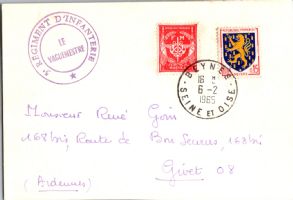 5e REGIMENT D'INFANTERIE
LE
VAGUEMESTRE
BEYNES
16 H
6-2
1965
SEINE ET OISE
Monsieur René Goin
168 bis, Route de Bon Secours, 168 bis
Givet 08
(Ardennes)